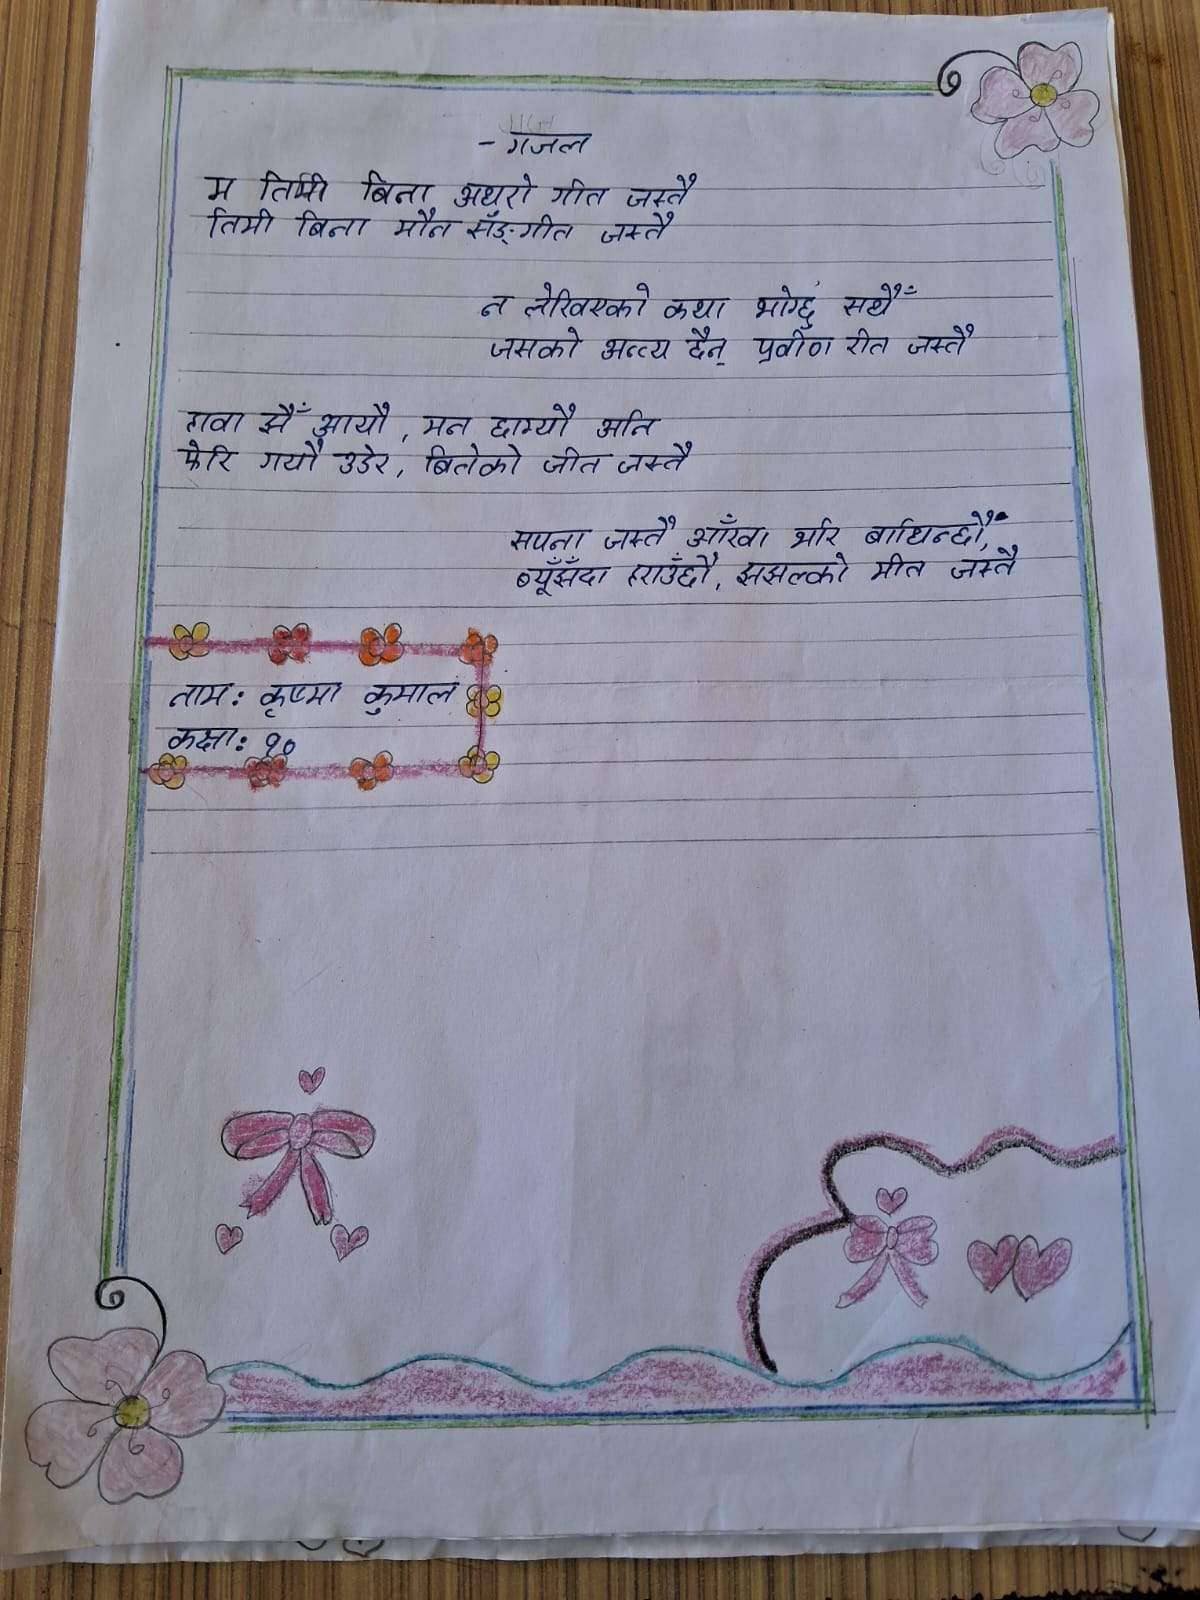 - गजल
म तिमी बिना अधरो गीत जस्तै
तिमी बिना मौन सँङ्गीत जस्तै
न लेखिएको कथा भोग्छु सधैँ
जसको अन्त्य छैन् प्रवीण रीत जस्तै
हावा झैँ आयौ, मन छाम्यौ अनि
फेरि गयौ उडेर, बितेको जीत जस्तै
सपना जस्तै आँखा भरि बाधिन्छौँ,
ब्यूँझँदा हराउँछौ, झझल्को मीत जस्तै
नाम: कृष्मा कुमाल
कक्षा: १०